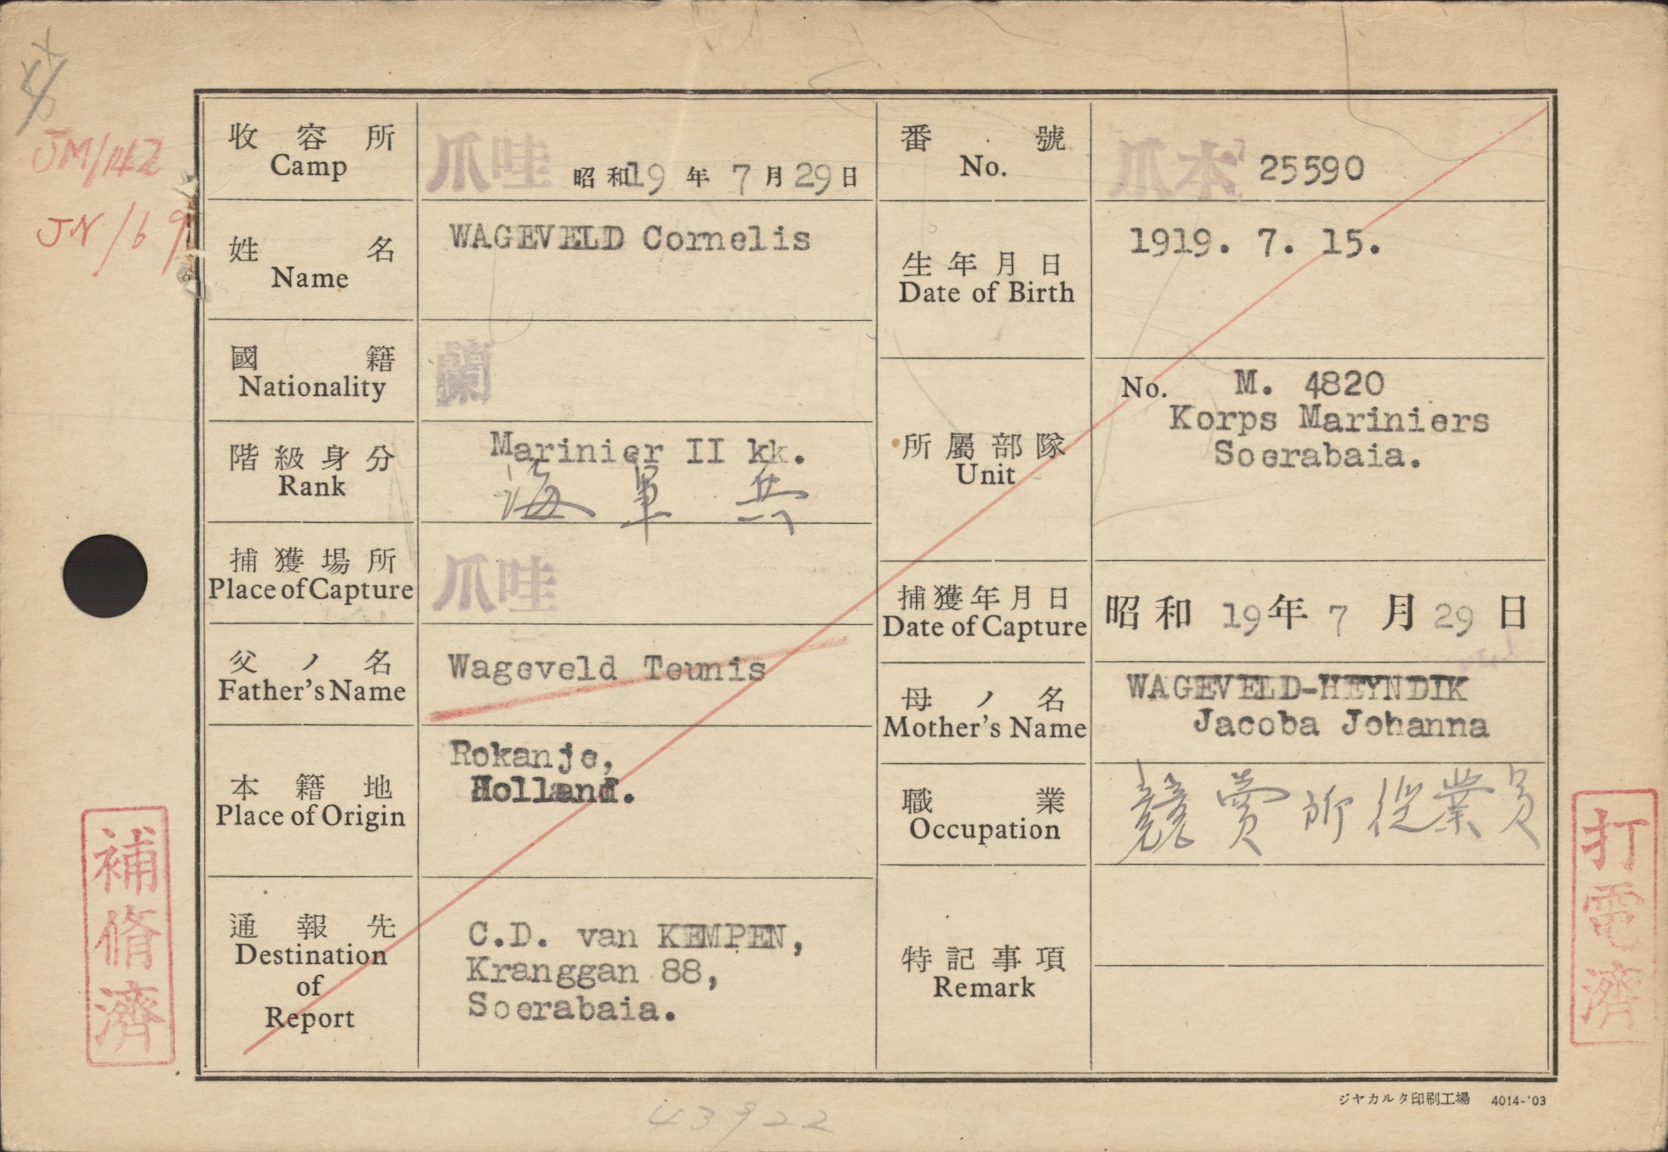 JM/142
JN/69
收容所
Camp
爪哇 昭和19年7月29日
番號
No.
爪本 25590
姓名
Name
WAGEVELD Cornelis
生年月日
Date of Birth
1919. 7. 15.
國籍
Nationality
蘭
階級身分
Rank
Marinier II kk.
海軍兵
所屬部隊
Unit
No. M. 4820
Korps Mariniers
Soerabaia.
捕獲場所
Place of Capture
爪哇
捕獲年月日
Date of Capture
昭和19年7月29日
父ノ名
Father's Name
Wageveld Teunis
母ノ名
Mother's Name
WAGEVELD-HEYNDIK
Jacoba Johanna
本籍地
Place of Origin
Rokanje,
Holland.
職業
Occupation
競賣所従業員
通報先
Destination
of
Report
C.D. van KEMPEN,
Kranggan 88,
Soerabaia.
特記事項
Remark
補脩濟
打電濟
ジヤカルタ印刷工場 4014-'03
43922